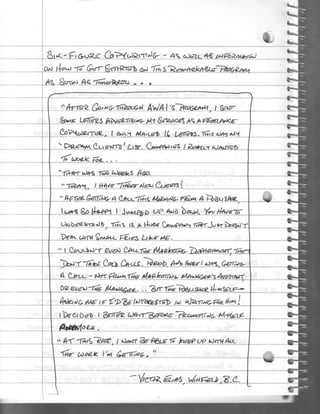 SIX-FIGURE COPYWRITING - AS WELL AS INFORMATION
ON HOW TO GET STARTED ON THIS REMARKABLE PROGRAM
AS SOON AS TOMORROW . . .
"AFTER GOING THROUGH AWAI'S PROGRAM, I SENT
SOME LETTERS ADVERTISING MY SERVICES AS A FREELANCE
COPYWRITER. I ONLY MAILED 16 LETTERS. THIS WAS MY
"DREAM CLIENTS" LIST. COMPANIES I REALLY WANTED
TO WORK FOR...
"THAT WAS TWO WEEKS AGO.
"TODAY, I HAVE THREE NEW CLIENTS!
"AFTER GETTING A CALL THIS MORNING FROM A PUBLISHER,
I WAS SO HAPPY I JUMPED UP AND DOWN. YOU HAVE TO
UNDERSTAND, THIS IS A HUGE COMPANY THAT JUST DOESN'T
DEAL WITH SMALL FRIES LIKE ME.
"I COULDN'T EVEN CALL THE MARKETING DEPARTMENT, THEY
DON'T TAKE COLD CALLS. PERIOD. AND HERE I WAS, GETTING
A CALL - NOT FROM THE MARKETING MANAGER'S ASSISTANT
OR EVEN THE MANAGER... BUT THE PUBLISHER HIMSELF -
ASKING ME IF I'D BE INTERESTED IN WRITING FOR HIM!
I DECIDED I BETTER WAIT BEFORE PROMOTING MYSELF
MORE.
"AT THIS RATE, I WON'T BE ABLE TO KEEP UP WITH ALL
THE WORK I'M GETTING."
- VICTOR ELIAS, WINFIELD, B.C.